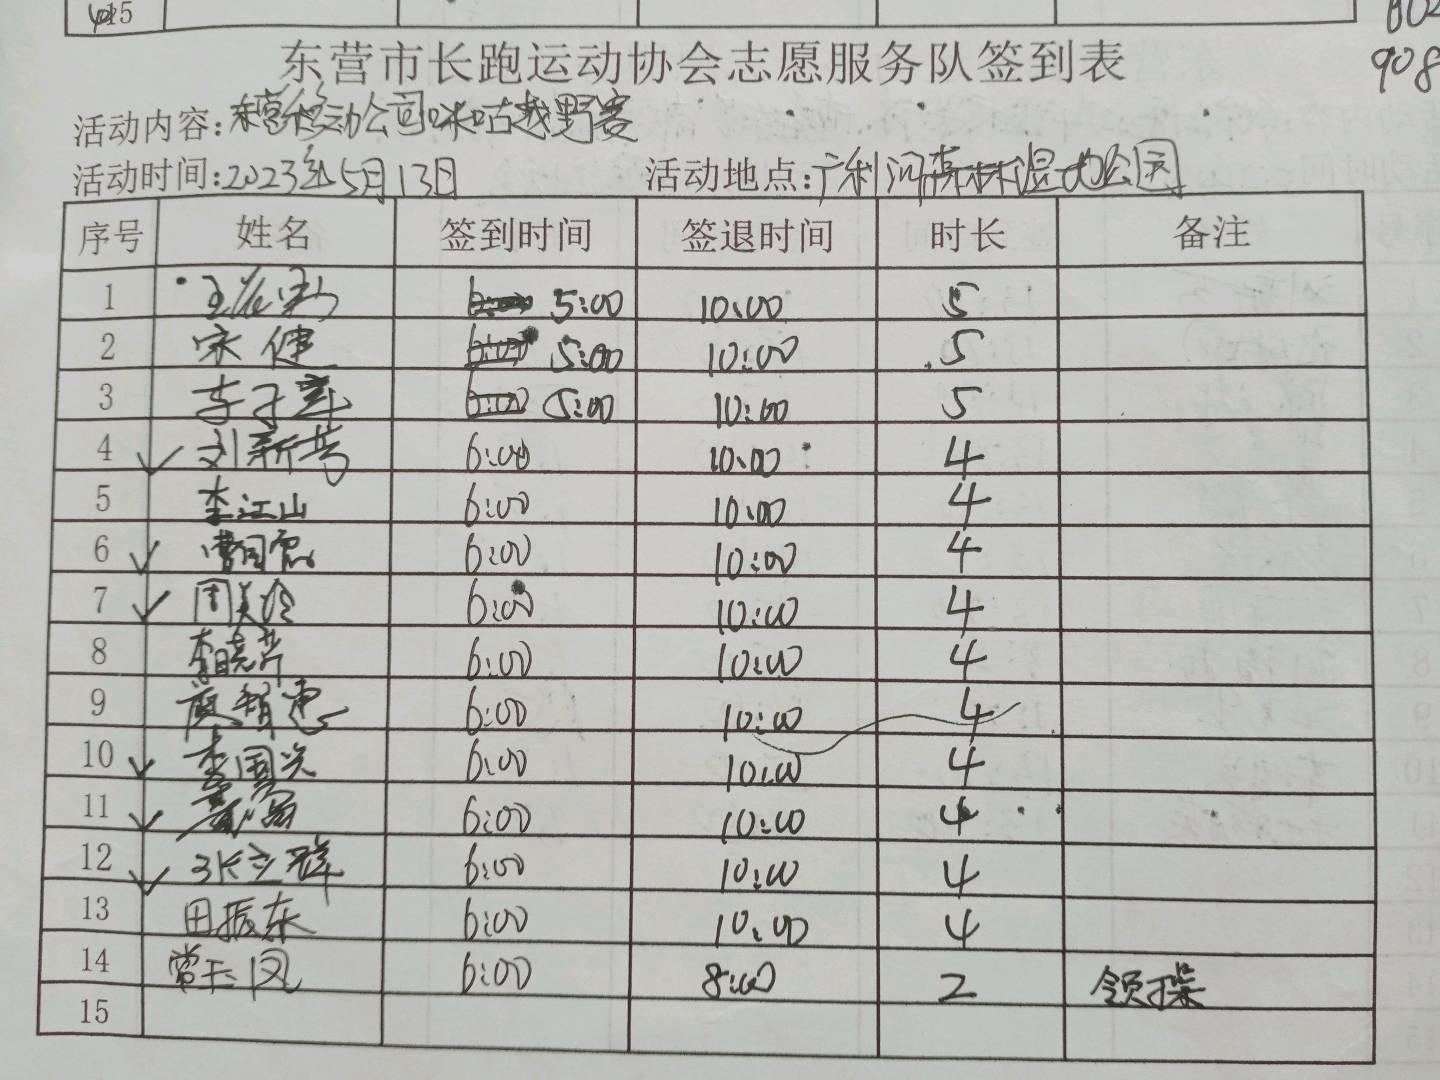 东营市长跑运动协会志愿服务队签到表
908
活动内容:东营移动公司咪咕越野赛
活动时间:2023年5月13日 活动地点:广利河森林湿地公园
序号 姓名 签到时间 签退时间 时长 备注
1 5:00 10:00 5
2 宋健 5:00 10:00 5
3 李子 5:00 10:00 5
4 刘新芳 6:00 10:00 4
5 李江山 6:00 10:00 4
6 曹国 6:00 10:00 4
7 周美玲 6:00 10:00 4
8 李晓芳 6:00 10:00 4
9 6:00 10:00 4
10 李国 6:00 10:00 4
11 6:00 10:00 4
12 张立群 6:00 10:00 4
13 田振东 6:00 10:00 4
14 常玉凤 6:00 8:00 2 领操
15